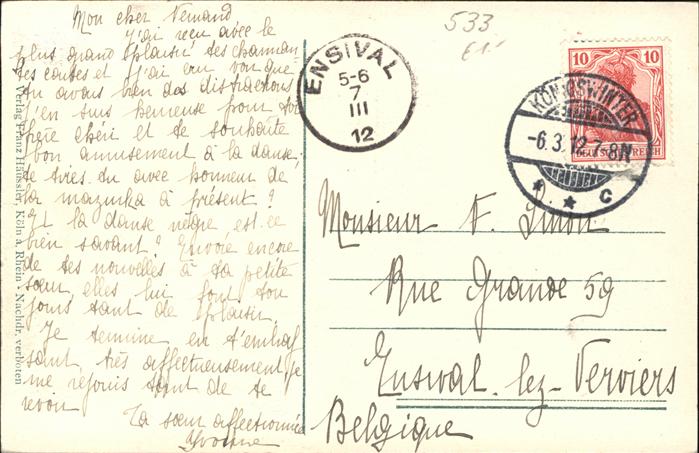 Mon cher Fernand
J'ai reçu avec le
plus grand plaisir tes charman-
tes cartes et j'ai cru voir que
tu avais bien des distractions
j'en suis heureuse pour toi
frère chéri et te souhaite
bon amusement à la danse,
te tires-tu avec honneur de
la mazurka à présent ?
Et la danse nègre est-ce
bien savant ? Envoie encore
de tes nouvelles à ta petite
sœur, elles lui font tou
jours tant de plaisir.
Je termine en t'embras
sant très affectueusement je
me réjouis tant de te
revoir
Ta sœur affectionnée
Yvonne
Verlag Franz Häussler, Köln a. Rhein - Nachdr. verboten
533
ENSIVAL
5-6
7
III
12
10 10
DEUTSCHES REICH
KÖNIGSWINTER
-6.3.12.7-8N
* * c
Monsieur F. Simon
Rue Grande 59
Ensival-lez-Verviers
Belgique